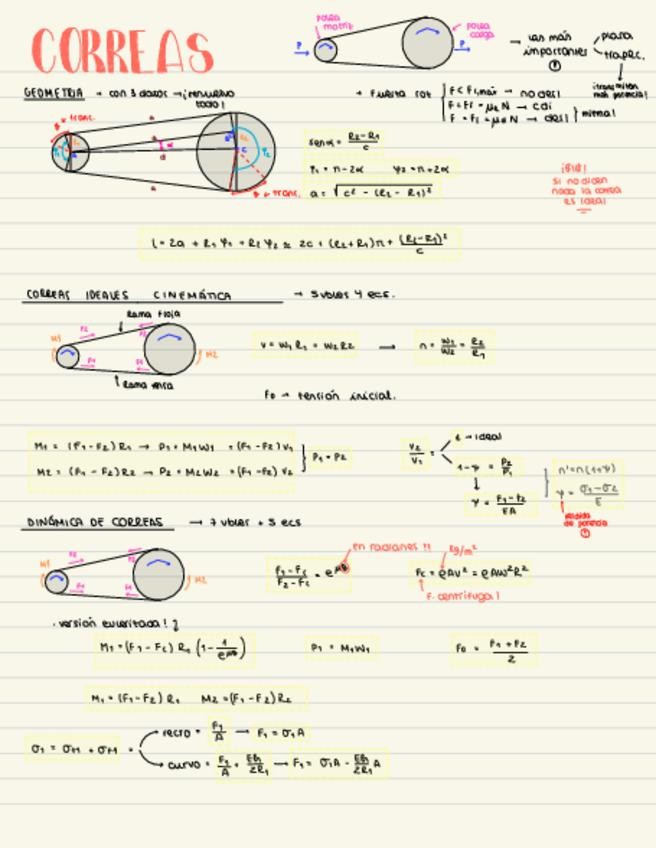 CORREAS
polea motriz
polea carga
P
P
→ las más importantes
plana
trapec.
¡transmiten más potencia!
GEOMETRIA → con 3 datos → ¡resuelvo todo!
→ Fuerza roz
F < Fr,máx → no desl
F = Fr = μe N → casi
F = Fr = μ N → desl
sen α = (R2 - R1)/c
φ1 = π - 2α    φ2 = π + 2α
a = √(c² - (R2 - R1)²)
si no dicen nada la correa es ideal
l = 2a + R1 φ1 + R2 φ2 ≈ 2c + (R2 + R1)π + (R2 - R1)²/c
CORREAS IDEALES CINEMÁTICA → 5 vbles 4 ecs.
rama floja
M1
F2
F2
F1
F1
M2
rama tensa
v = w1 R1 = w2 R2 → n = w1/w2 = R2/R1
F0 → tensión inicial.
M1 = (F1 - F2) R1 → P1 = M1 w1 = (F1 - F2) v1
M2 = (F1 - F2) R2 → P2 = M2 w2 = (F1 - F2) v2
P1 = P2
v2/v1 =
1 → ideal
1 - ψ = P2/P1
ψ = (F1 - F2)/EA
n' = n(1+ψ)
ψ = (σ1 - σ2)/E
pérdida de potencia
DINÁMICA DE CORREAS → 7 vbles + 5 ecs
M1
F2
F2
F1
F1
M2
en radianes !!
(F1 - Fc)/(F2 - Fc) = e^μβ
kg/m³
Fc = ρAv² = ρAw²R²
F. centrífuga!
M1 = (F1 - Fc) R1 (1 - 1/e^μβ)
P1 = M1 w1
F0 = (F1 + F2)/2
M1 = (F1 - F2) R1    M2 = (F1 - F2) R2
recto = F1/A → F1 = σ1 A
curvo = F1/A + Eh/2R1 → F1 = σ1 A - Eh/2R1 A